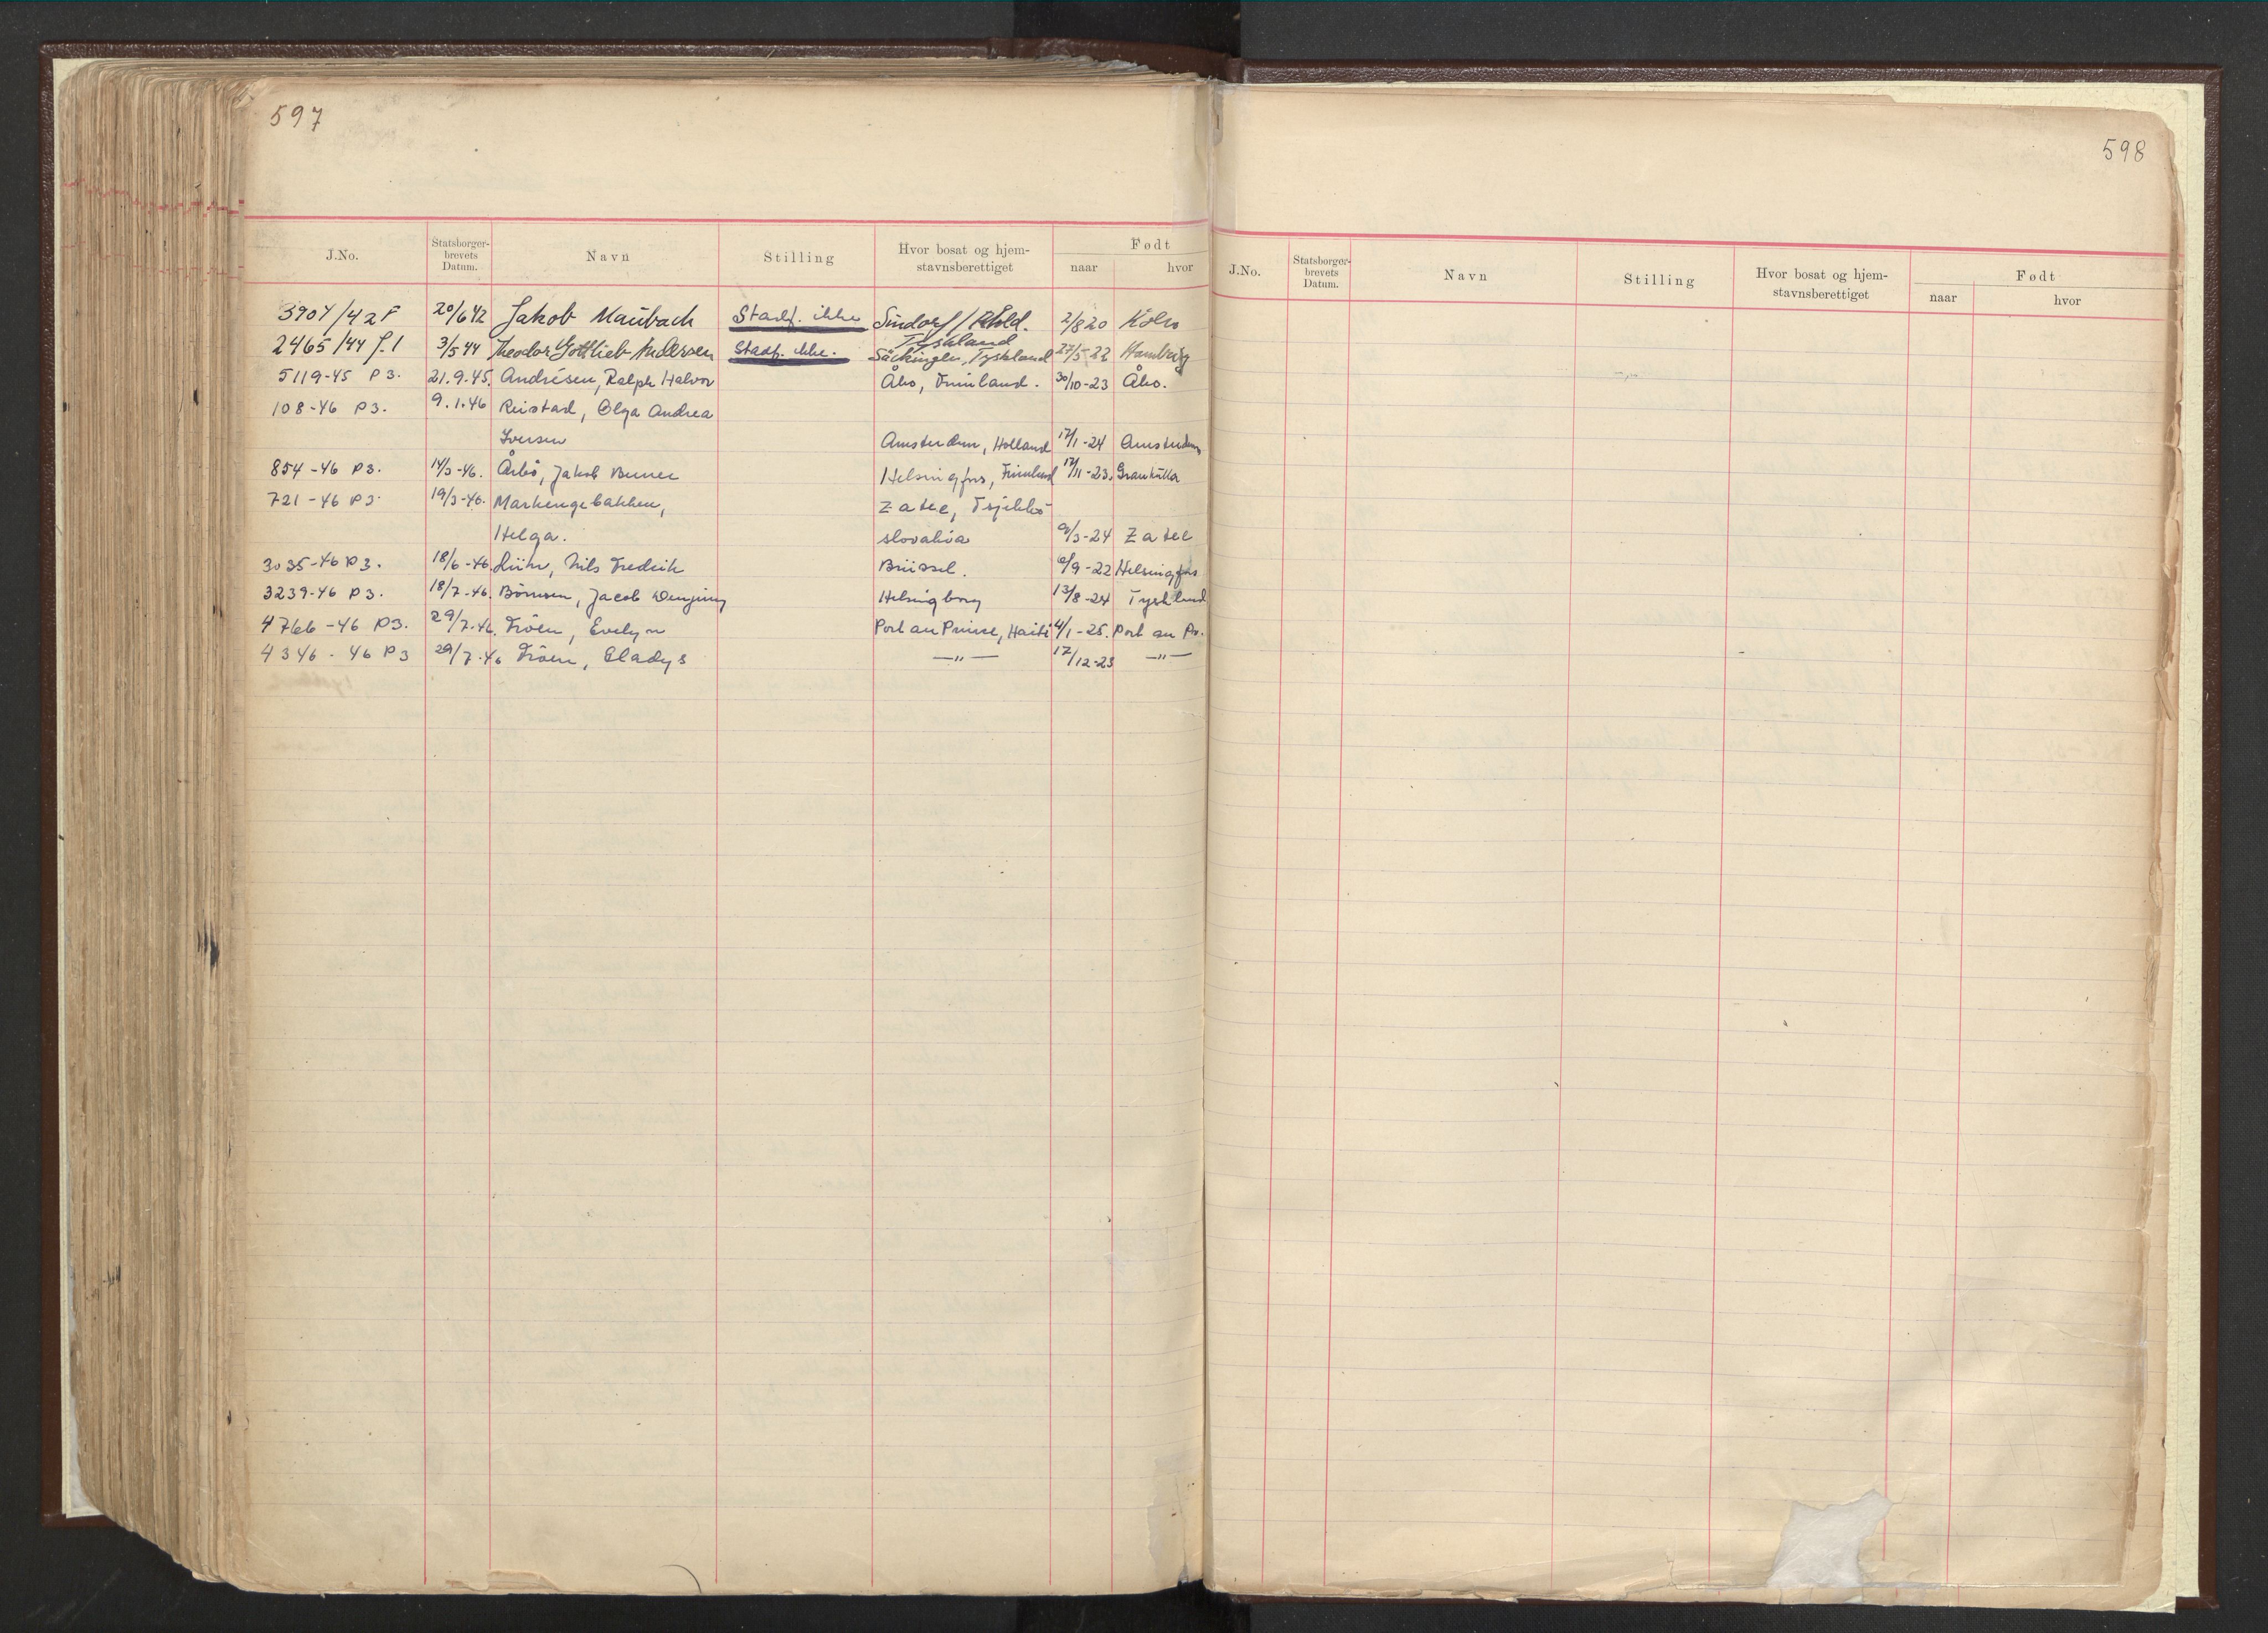 597
J.No. Statsborger-brevets Datum. Navn Stilling Hvor bosat og hjem-stavnsberettiget Født naar hvor
3907/42 F 20/6 42 Jakob Maubach Stadf. ikke Sindorf/Rhld. 2/8 20 Köln
Tyskland
2465/44 J.1 3/5 44 Theodor Gottlieb Andersen Stadf. ikke. Säckingen, Tyskland 27/5-22 Hamburg
5119-45 P3. 21.9.45. Andrésen, Ralph Halvor Åbo, Finnland. 30/10-23 Åbo.
108-46 P3. 9.1.46 Reistad, Olga Andrea
Iversen Amsterdam, Holland 17/1-24 Amsterdam
854-46 P3. 14/3-46. Årbo, Jakob Helsingfors, Finnland 17/11-23. Grankulla
721-46 P3. 19/3-46. Markengebakken, Zatec, Tsjekko-
Helga. slovakia 9/3-24 Zatec
3035-46 P3. 18/6-46. Lühr, Nils Fredrik Brüssel. 9/9-22 Helsingfors
3239-46 P3. 18/7-46. Börnsen, Jacob Helsingborg 13/8-24 Tyskland
4766-46 P3. 29/7.46. Tröen, Evelyn Port au Prince, Haiti 4/1-25. Port au Pr.
4346-46 P3 29/7.46 Tröen, Gladys —"— 17/12-23 —"—
598
J.No. Statsborger-brevets Datum. Navn Stilling Hvor bosat og hjem-stavnsberettiget Født naar hvor